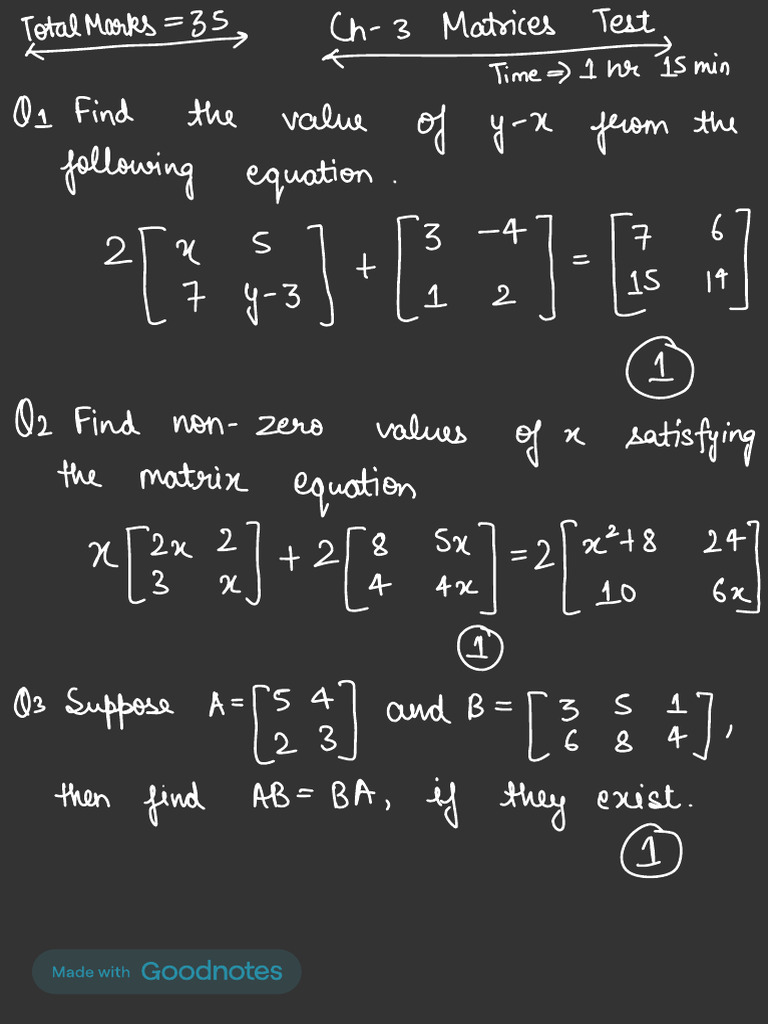 Total Marks = 35
Ch-3 Matrices Test
Time ⇒ 1 hr 15 min
Q1 Find the value of y-x from the
following equation.
2 [ x 5 ; 7 y-3 ] + [ 3 -4 ; 1 2 ] = [ 7 6 ; 15 14 ]
1
Q2 Find non-zero values of x satisfying
the matrix equation
x [ 2x 2 ; 3 x ] + 2 [ 8 5x ; 4 4x ] = 2 [ x²+8 24 ; 10 6x ]
1
Q3 Suppose A = [ 5 4 ; 2 3 ] and B = [ 3 5 1 ; 6 8 4 ],
then find AB = BA, if they exist.
1
Made with Goodnotes